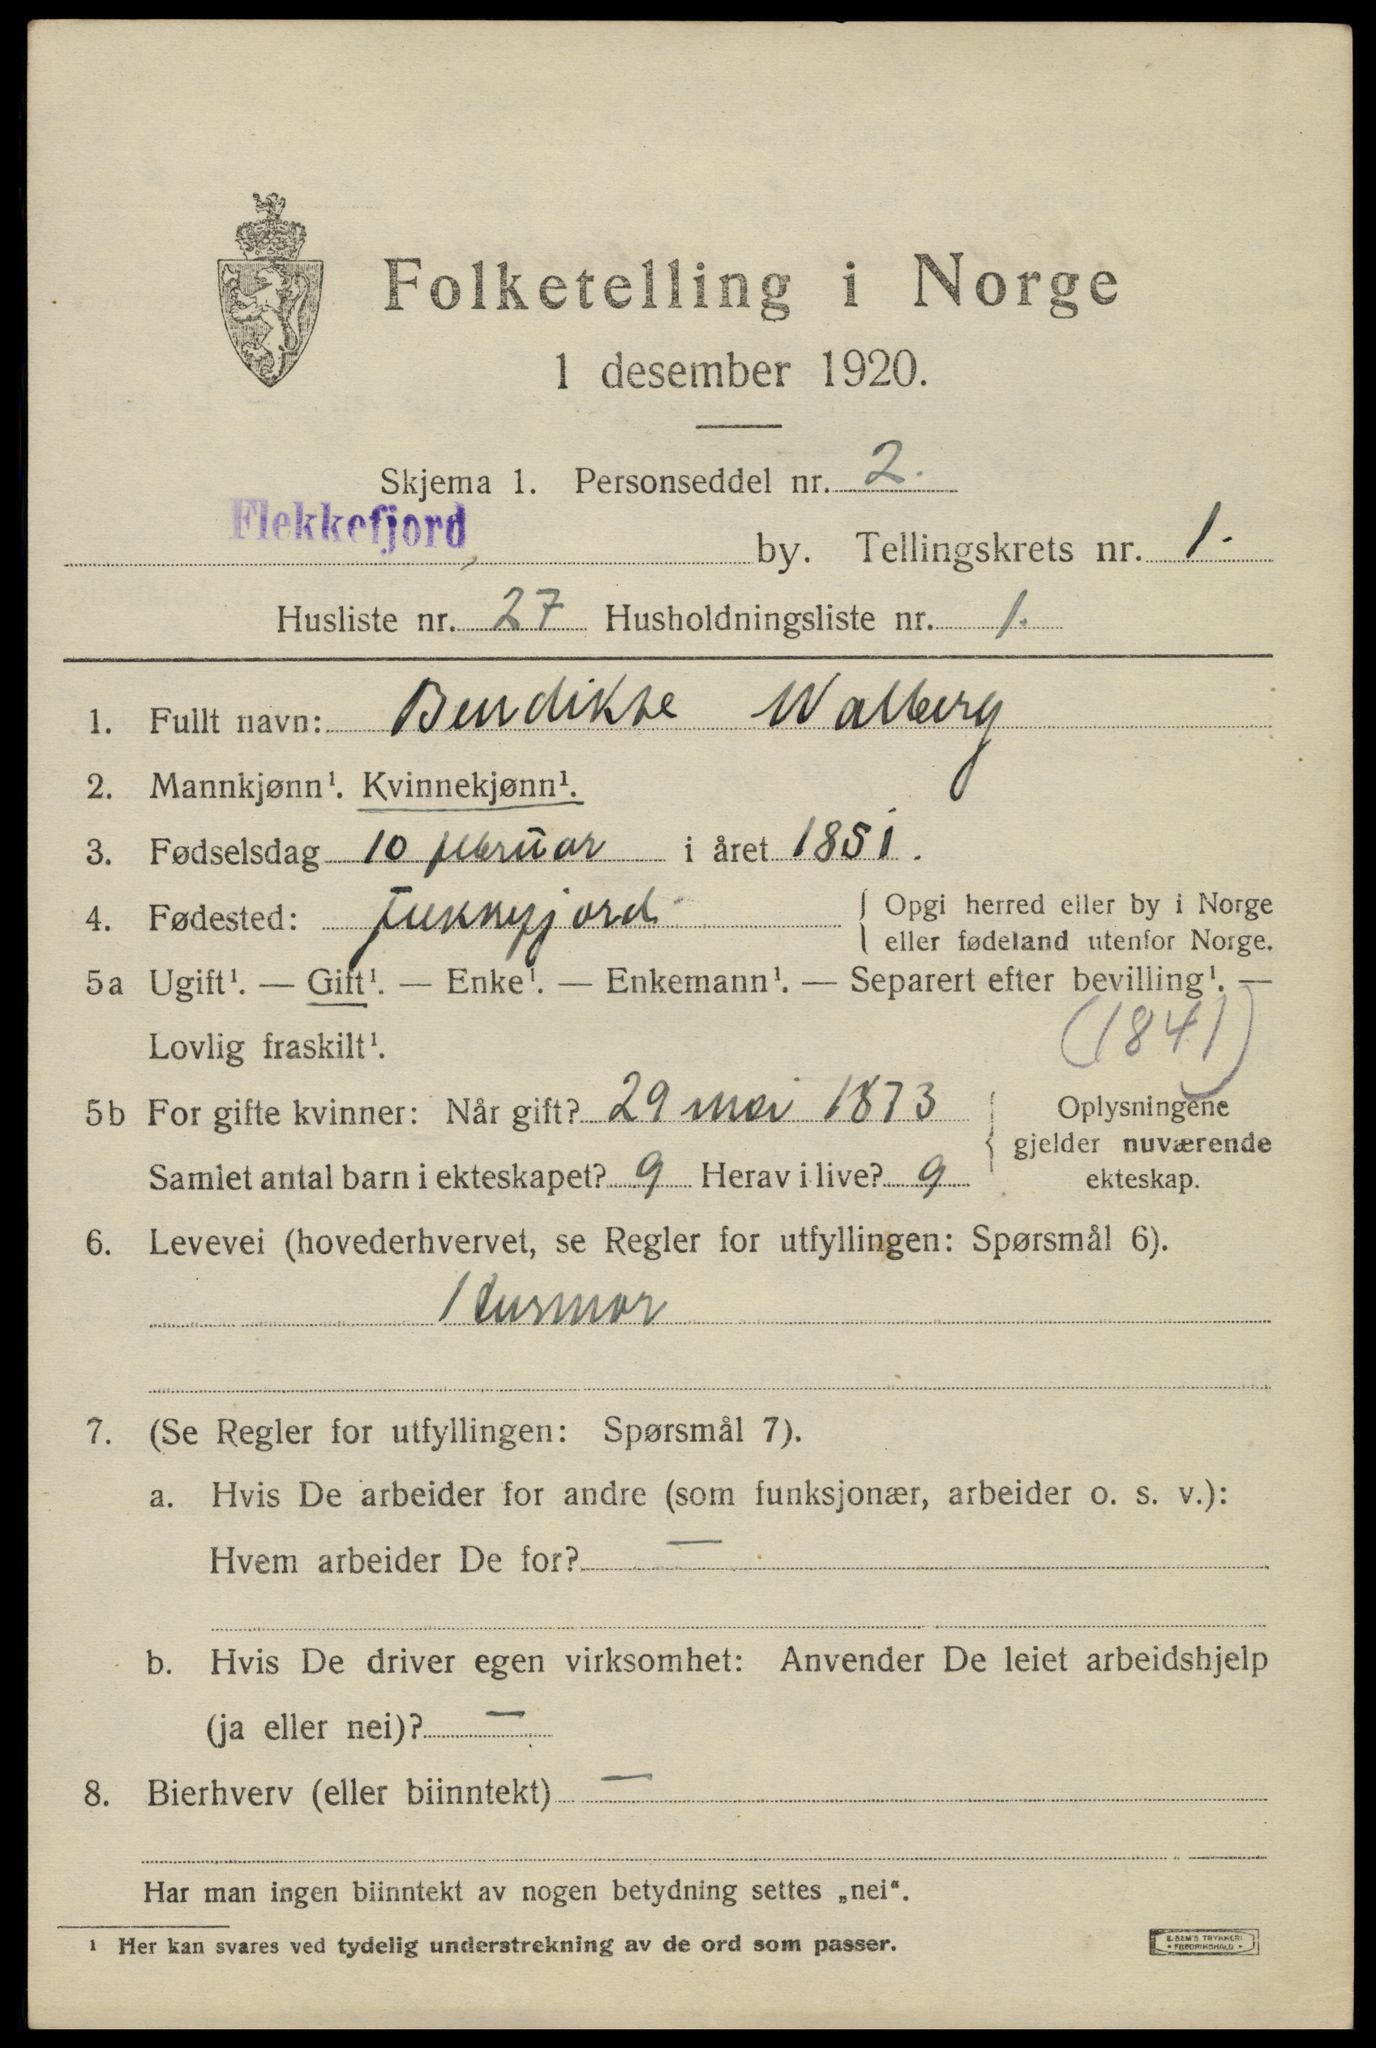 Folketelling i Norge
1 desember 1920.
Skjema 1. Personseddel nr. 2.
Flekkefjord, by. Tellingskrets nr. 1.
Husliste nr. 27 Husholdningsliste nr. 1.
1. Fullt navn: Bendikte Walberg
2. Mannkjønn¹. Kvinnekjønn¹.
3. Fødselsdag 10 februar i året 1851.
4. Fødested: Flekkefjord { Opgi herred eller by i Norge
eller fødeland utenfor Norge.
5a Ugift¹. — Gift¹. — Enke¹. — Enkemann¹. — Separert efter bevilling¹. —
Lovlig fraskilt¹. (1841)
5b For gifte kvinner: Når gift? 29 mai 1873 { Oplysningene
gjelder nuværende
Samlet antal barn i ekteskapet? 9 Herav i live? 9 ekteskap.
6. Levevei (hovederhvervet, se Regler for utfyllingen: Spørsmål 6).
Husmor
7. (Se Regler for utfyllingen: Spørsmål 7).
a. Hvis De arbeider for andre (som funksjonær, arbeider o. s. v.):
Hvem arbeider De for? —
b. Hvis De driver egen virksomhet: Anvender De leiet arbeidshjelp
(ja eller nei)? —
8. Bierhverv (eller biinntekt) —
Har man ingen biinntekt av nogen betydning settes „nei“.
¹ Her kan svares ved tydelig understrekning av de ord som passer.
E. SEM'S TRYKKERI
• FREDRIKSHALD •